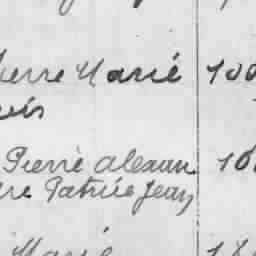 Pierre Marié 100
Pierre alexan 10
re Patrice Jean
Marie 18